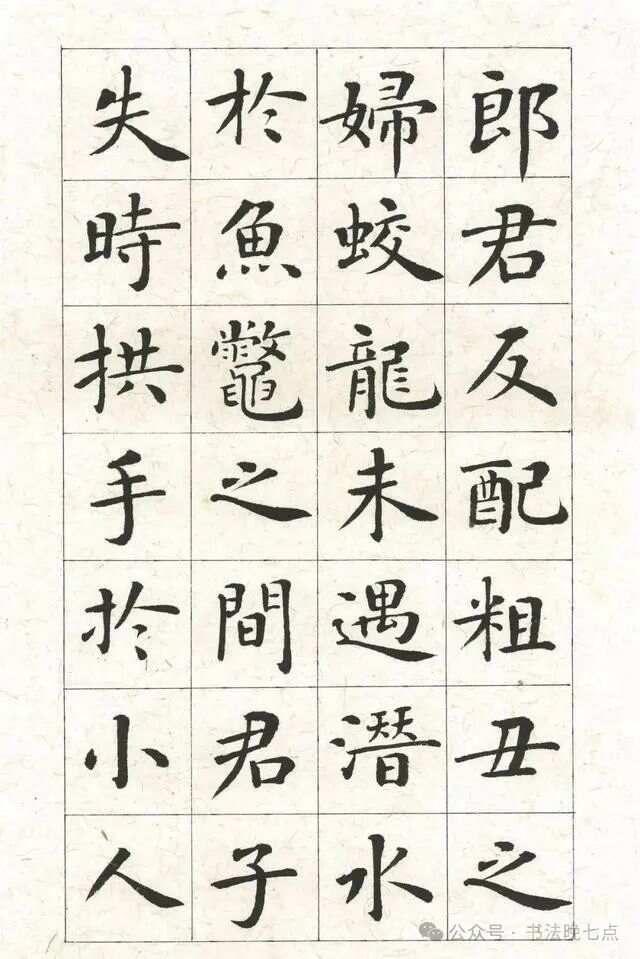 郎君反配粗丑之
婦蛟龍未遇潛水
於魚鼈之間君子
失時拱手於小人
公众号·书法晚七点